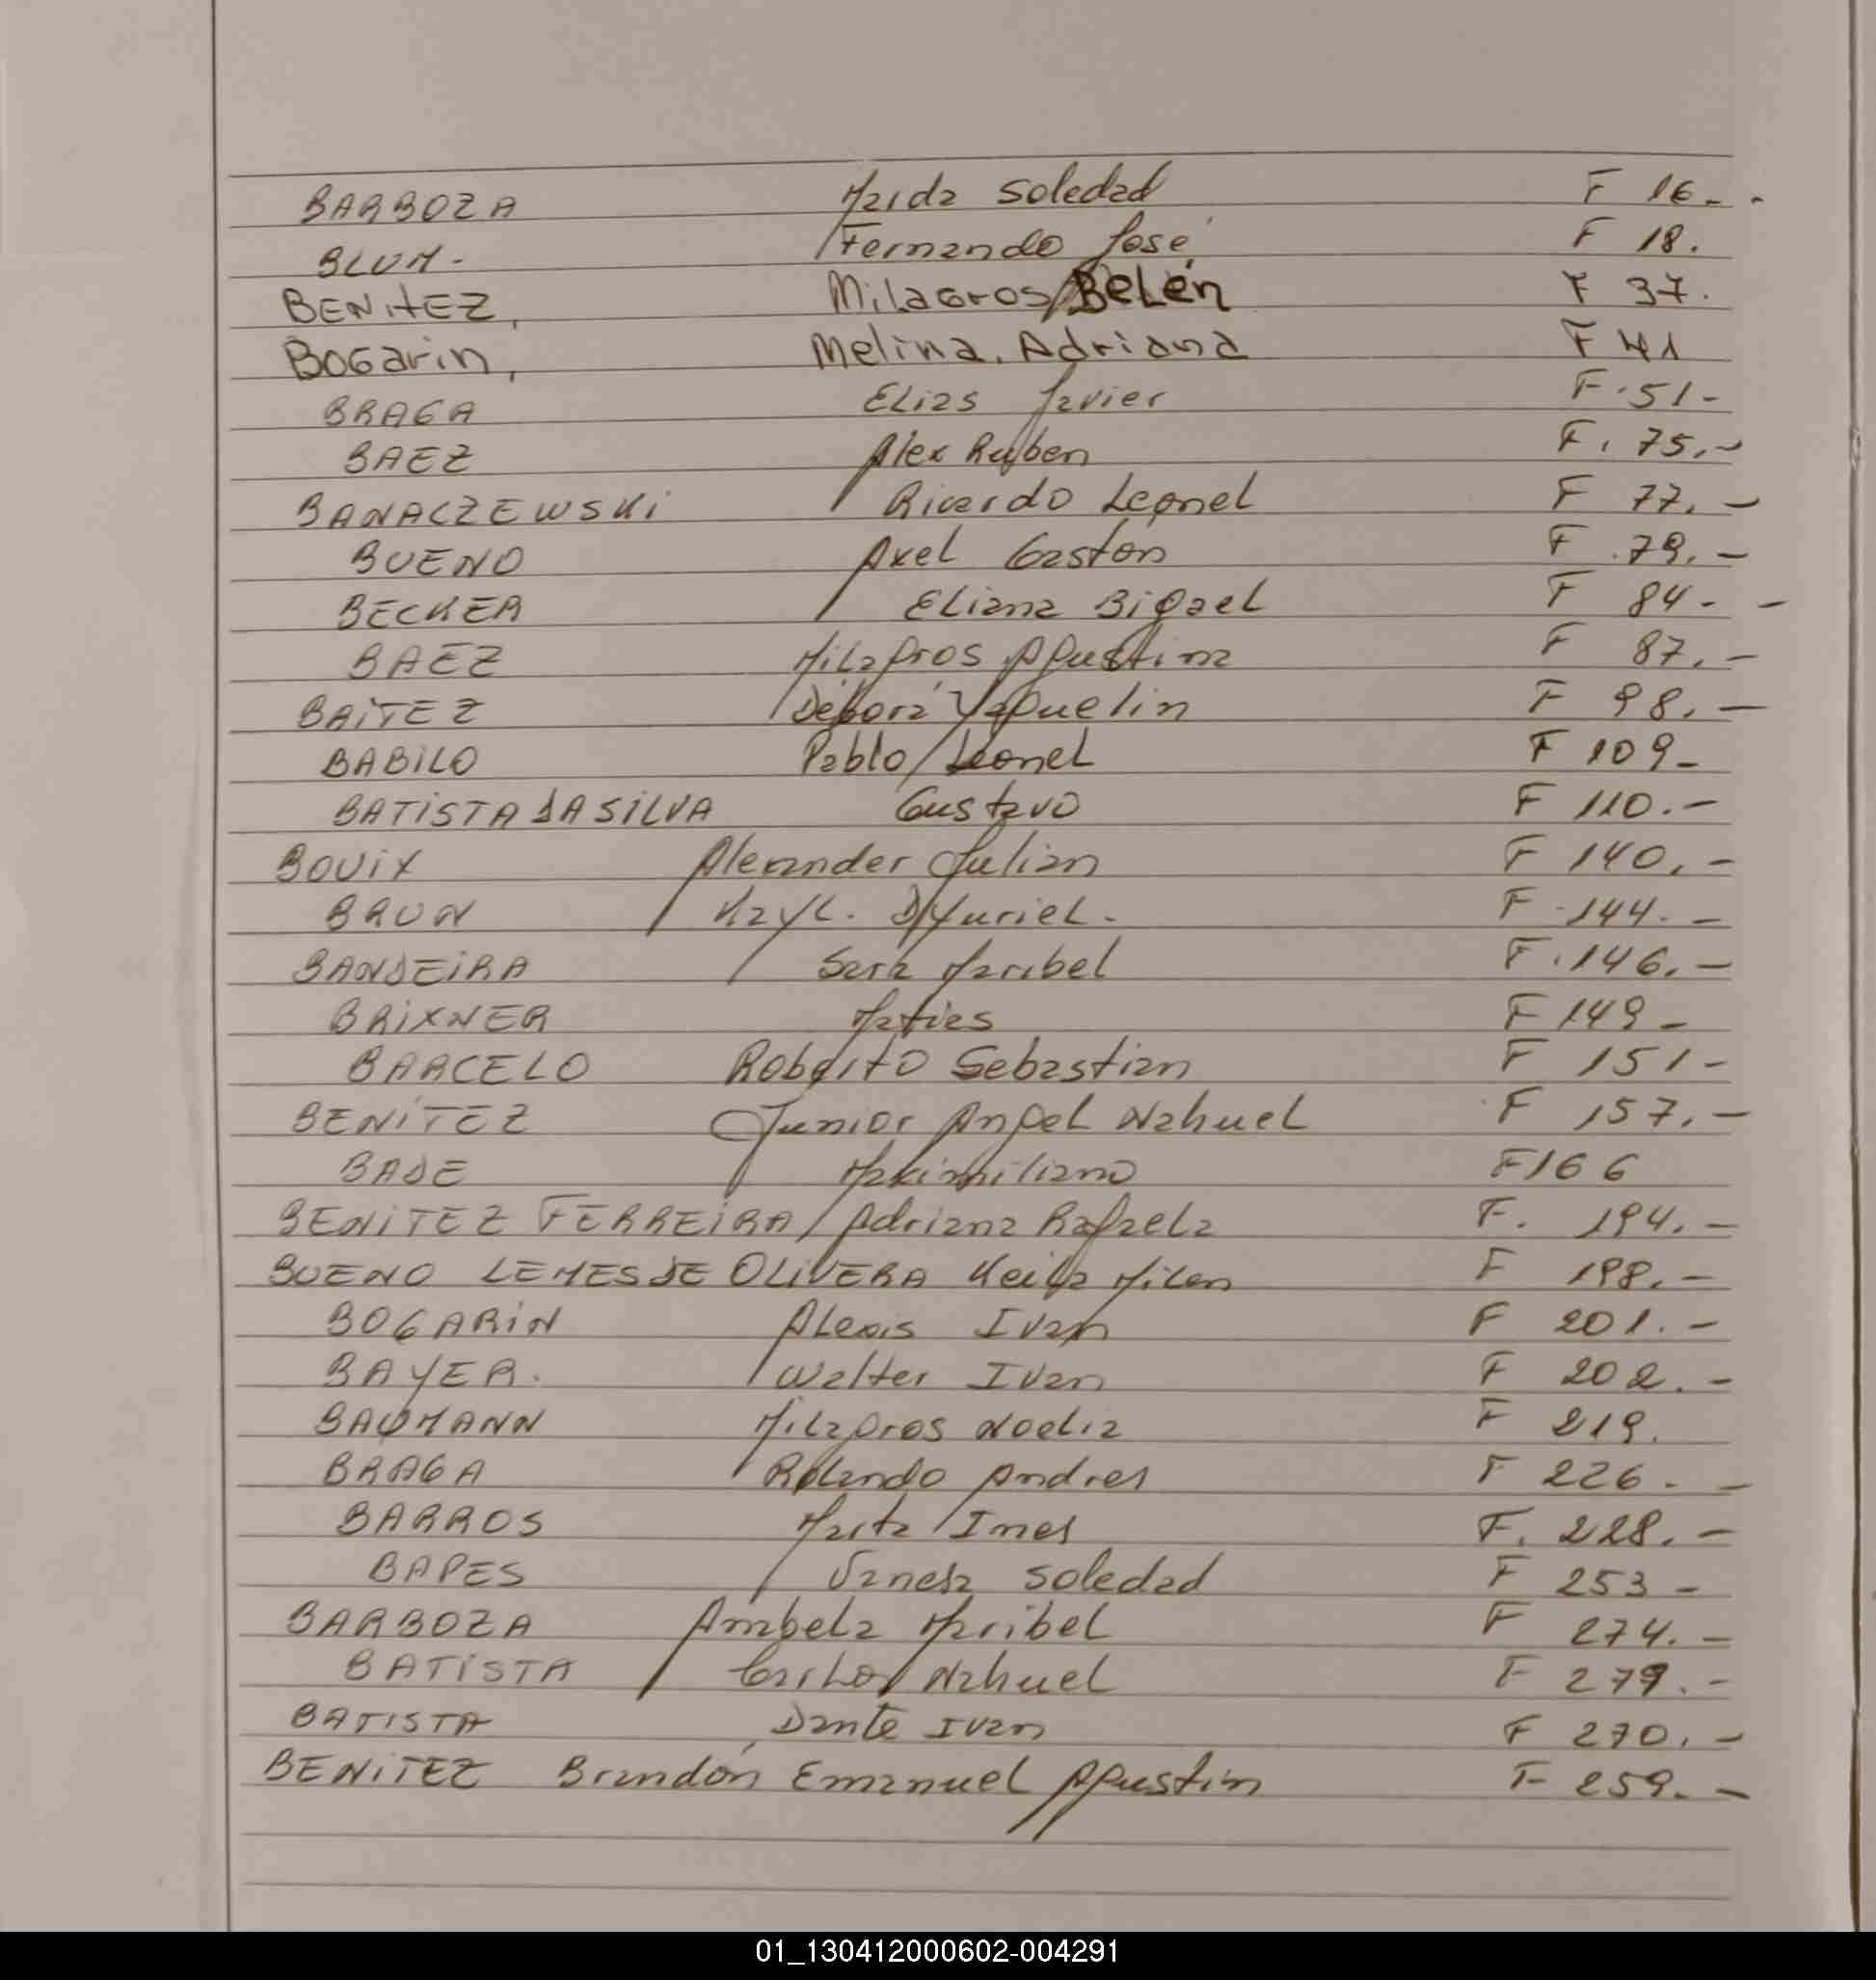 BARBOZA Maida Soledad F 16.-
BLUM.- Fernando José F 18.
BENitEZ, Milagros Belén F 37.
BOGarin, Melina. Adriana F 41
BRAGA Elias Javier F.51-
BAEZ Alex Ruben F. 75.-
BANACZEWSKi Ricardo Leonel F 77.-
BUENO Axel Gaston F 79.-
BECKER Eliana Bigael F 84.-
BAEZ Milagros Agustina F 87.-
BAiTEZ Débora Yaquelin F 98.-
BABiLO Pablo Leonel F 109-
BATiSTA DA SiLVA Gustavo F 110.-
BOUiX Alexander Julian F 140.-
BRUN F 144.-
BANDEiRA Sara Maribel F.146.-
BRiXNER Matias F 149-
BARCELO Roberto Sebastian F 151-
BENiTEZ Junior Angel Nahuel F 157.-
BADE Maximiliano F166
BENiTEZ FERREiRA Adriana Rafaela F. 194.-
BUENO LEMES DE OLiVERA Keila Milen F 198.-
BOGARiN Alexis Ivan F 201.-
BAYER. Walter Ivan F 202.-
BAUMANN Milagros Noelia F 219.
BRAGA Rolando Andres F 226.-
BARROS Marta Ines F. 228.-
Vanesa Soledad F 253-
BARBOZA Anabela Maribel F 274.-
BATiSTA Carlos Nahuel F 279.-
BATISTA Dante Ivan F 270.-
BENiTEZ Brandón Emanuel Agustin F 259.-
01_130412000602-004291